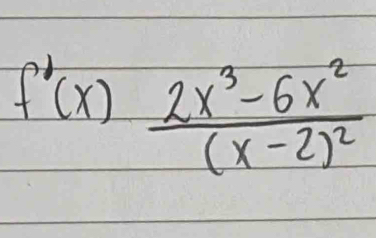 f'(x) (2x³-6x²)/(x-2)²